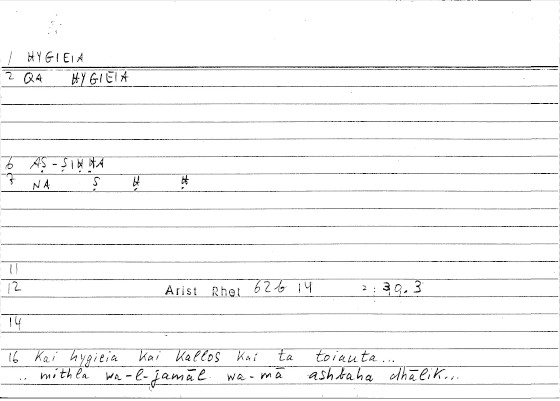 1 HYGIEIA
2 QA HYGIEIA
6 AṢ-ṢIḤḤA
7 NA Ṣ Ḥ Ḥ
11
12 Arist Rhet 62b 14 : 30.3
14
16 Kai hygieia kai kallos kai ta toiauta...
.. mithla wa-l-jamāl wa-mā ashbaha dhālik...